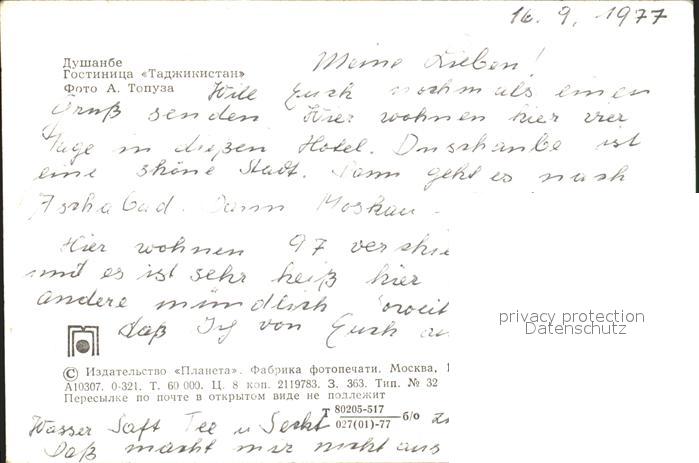 16. 9. 1977
Душанбе
Гостиница «Таджикистан»
Фото А. Топуза
Meine Lieben!
Will Euch nochmals einen
Gruß senden Wir wohnen hier vier
Tage in dießen Hotel. Duschanbe ist
eine shöne Stadt. Dann geht es nach
Aschabad. Dann Moskau.
Hier wohnen 97 verschie
und es ist sehr heiß hier
andere mündlich soweit
Daß Ihr von Euch
privacy protection
Datenschutz
© Издательство «Планета». Фабрика фотопечати. Москва, 1
А10307. 0-321. Т. 60 000. Ц. 8 коп. 2119783. З. 363. Тип. № 32
Пересылке по почте в открытом виде не подлежит
Т 80205-517 / 027(01)-77 б/о
Wasser Saft Tee u Seckt
Daß macht mir nicht aus